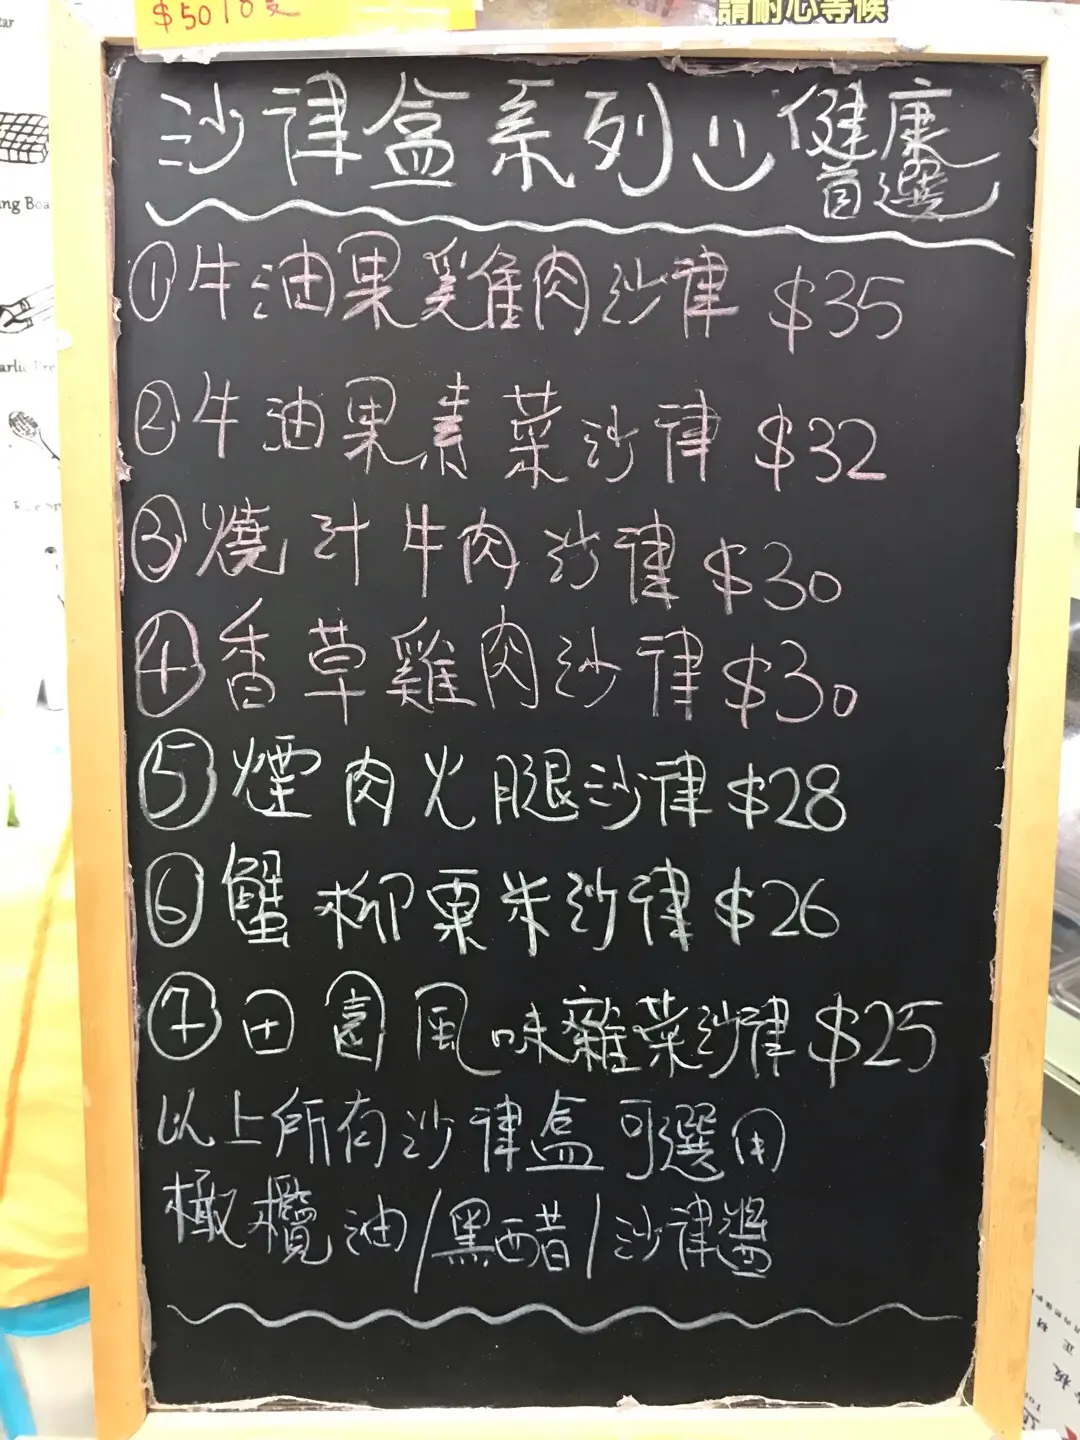 $50 10支
請耐心等候
沙律盒系列 健康
首選
① 牛油果雞肉沙律 $35
② 牛油果素菜沙律 $32
③ 燒汁牛肉沙律 $30
④ 香草雞肉沙律 $30
⑤ 煙肉火腿沙律 $28
⑥ 蟹柳粟米沙律 $26
⑦ 田園風味雜菜沙律 $25
以上所有沙律盒可選用
橄欖油/黑醋/沙律醬